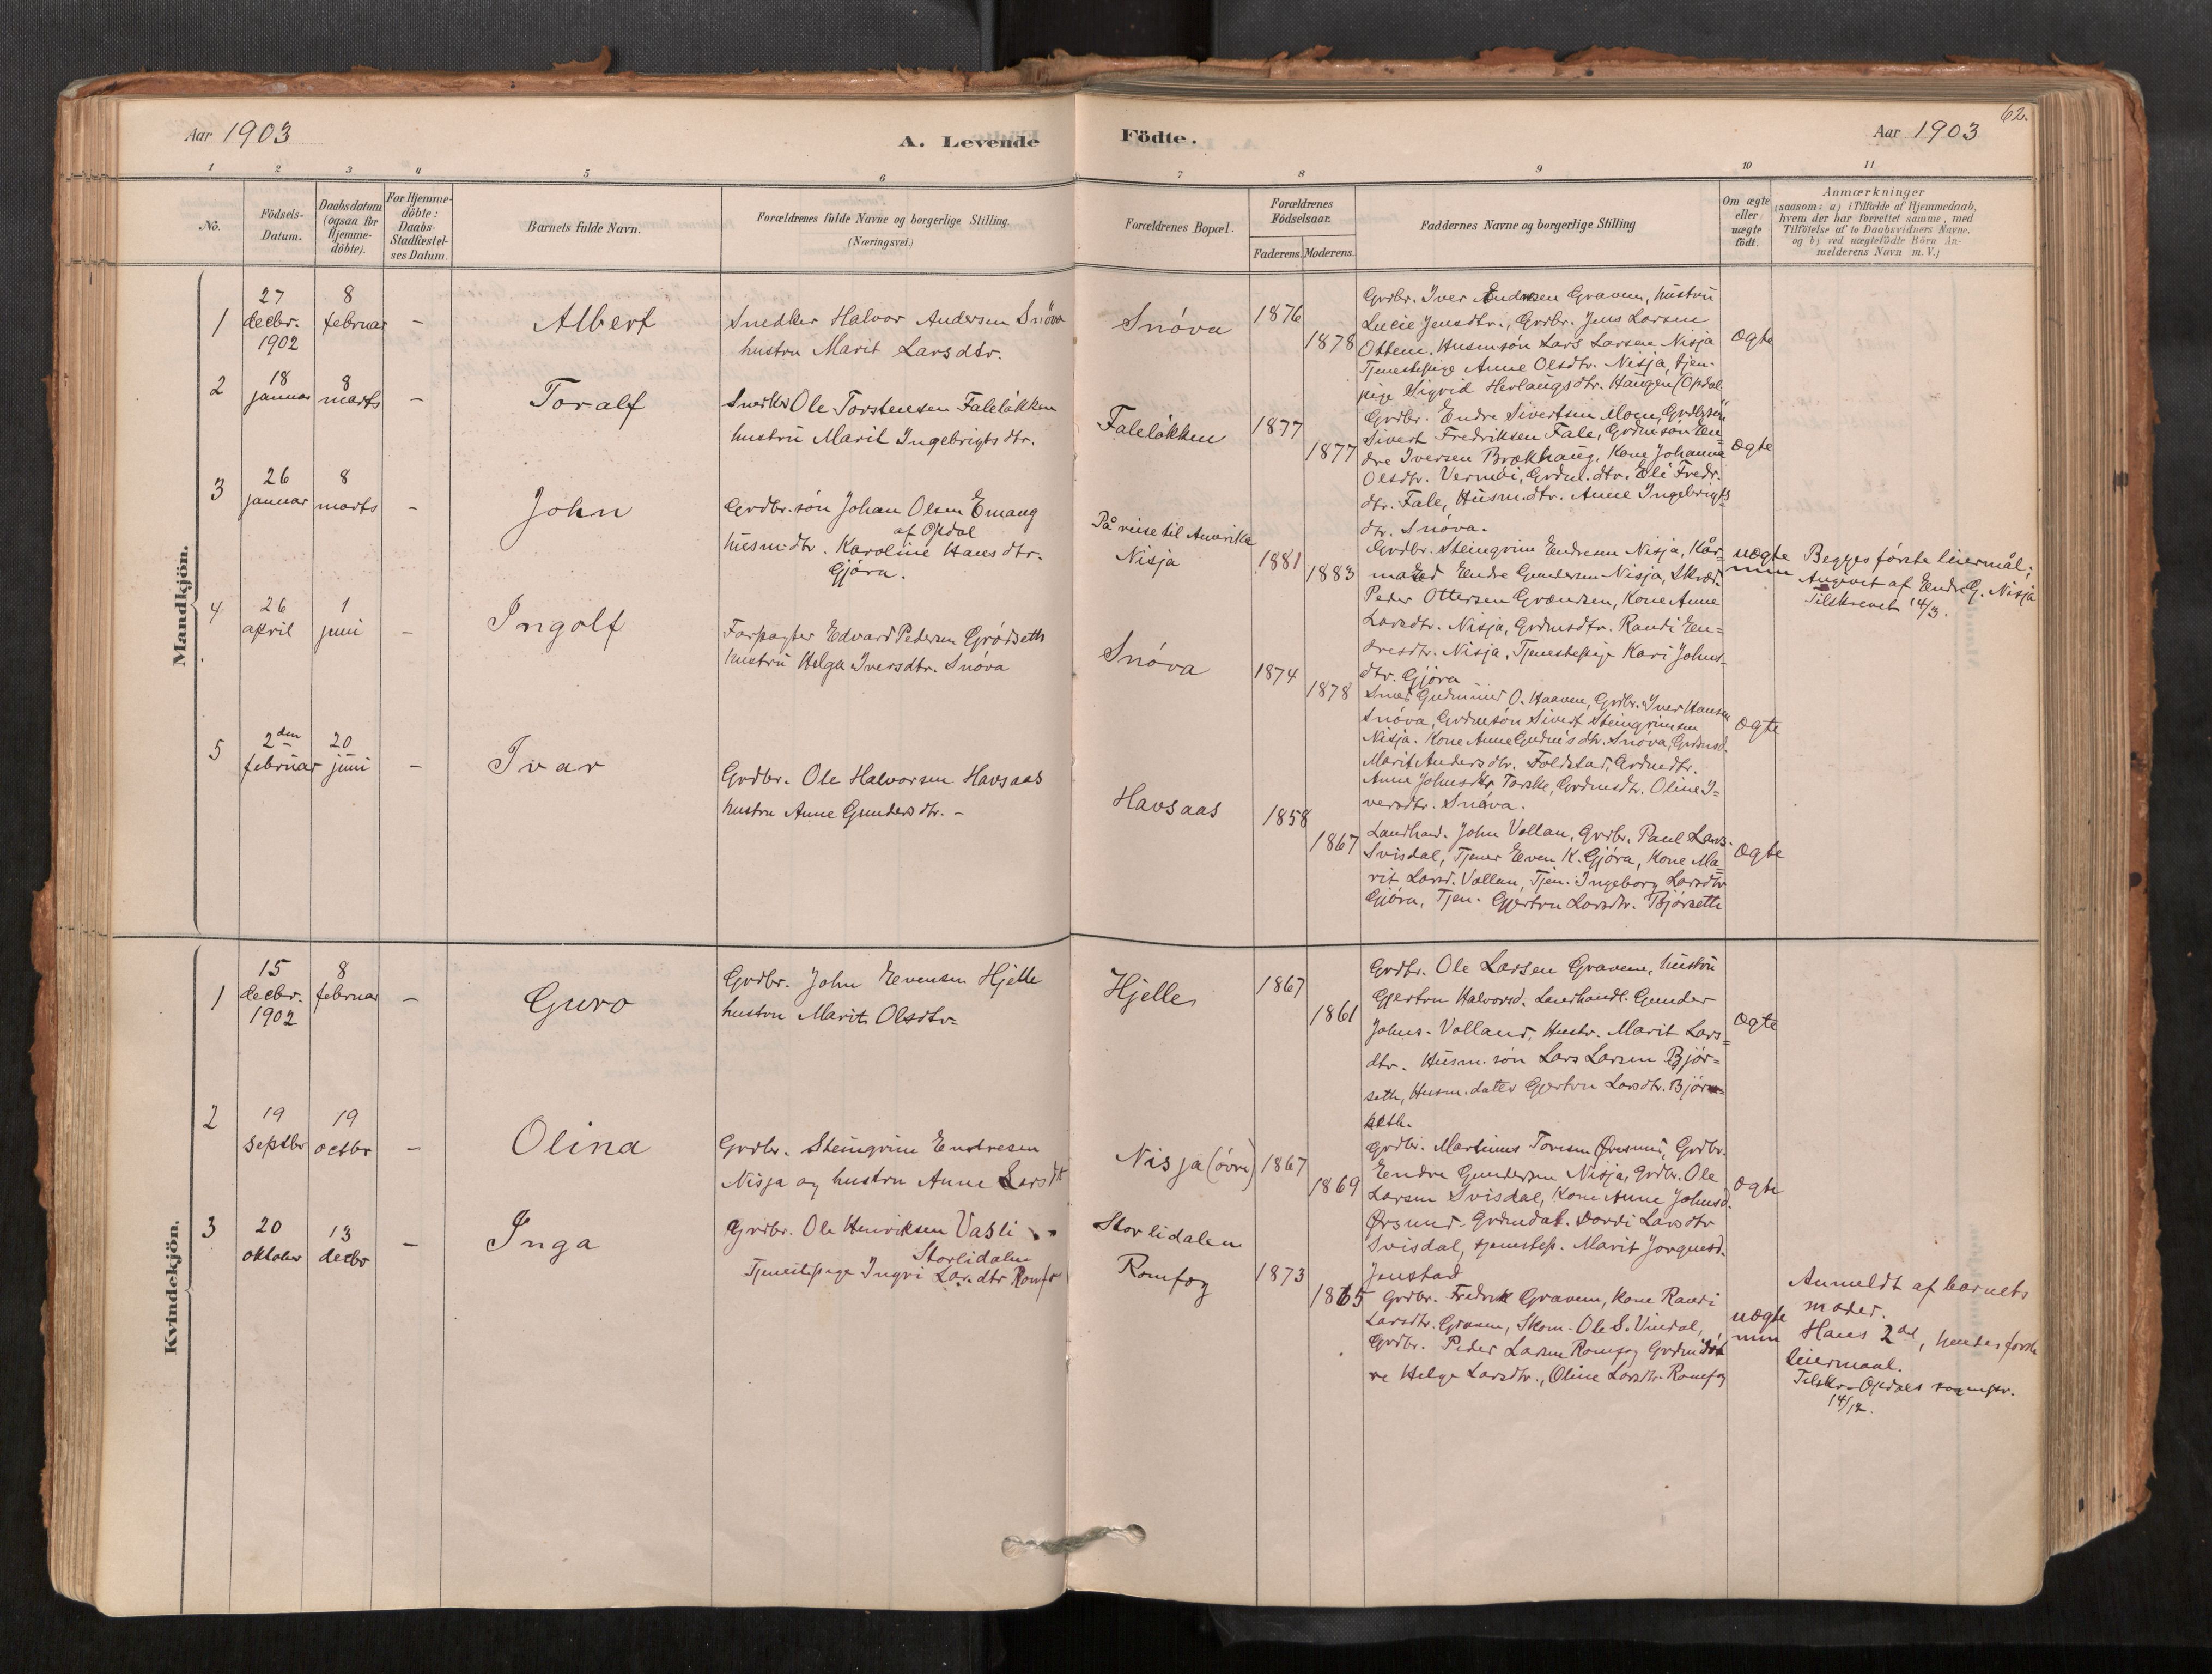 Aar 1903
A. Levende
Födte.
Aar 1903
62.
1 2 3 4 5 6 7 8 9 10 11
No.
Födsels-
Datum.
Daabsdatum
(ogsaa for
Hjemme-
döbte).
For Hjemme-
döbte:
Daabs-
Stadfæstel-
ses Datum.
Barnets fulde Navn.
Forældrenes fulde Navne og borgerlige Stilling.
(Næringsvei.)
Forældrenes Bopæl.
Forældrenes
Födselsaar.
Faderens. Moderens.
Faddernes Navne og borgerlige Stilling
Om ægte
eller
uægte
födt.
Anmærkninger
(saasom: a) i Tilfælde af Hjemmedaab,
hvem der har forrettet samme, med
Tilföielse af to Daabsvidners Navne.
og b) ved uægtefödte Börn An-
melderens Navn m. V.)
Mandkjön.
1
27
decbr.
1902
8
februar
-
Albert
Snedker Halvor Andersen Snöva
hustru Marit Larsdtr.
Snöva
1876
1878
Grdbr. Iver Endresen Gravem, hustru
Lucie Jensdtr., Grdbr. Jens Larsen
Ottem, Husm.sön Lars Larsen Nisja
Tjenestepige Anne Olsdtr. Nisja, tjen-
pige Sigrid Herlaugsdtr. Haugen (Opdal
ægte
2
18
januar
8
marts
-
Toralf
Snedker Ole Torstensen Falelökken
hustru Marit Ingebrigtsdtr.
Falelökken
1877
1877
Grdbr. Endre Sivertsen Moen, Grdbr.sön
Sivert Fredriksen Fale, Grdm.sön En-
dre Iversen Brækhaug, Kone Johanna
Olsdtr. Vermöi, Grdm.dtr. Eli Fredr.
dtr. Fale, Husm.dtr. Anne Ingebrigts-
dtr. Snöva.
ægte
3
26
januar
8
marts
-
John
Grdbr. sön Johan Olsen Emaug
af Opdal
husm.dtr. Karoline Hansdtr.
Gjöra.
På reise til Amerika
Nisja
1881
1883
Grdbr. Steingrim Endresen Nisja, Kår-
mand Endre Gundersen Nisja, Skræd.
Peder Ottersen Grændsen, Kone Anne
Larsdtr. Nisja, Grdmsdtr. Randi En-
dresdtr. Nisja, Tjenestepige Kari Johns-
dtr. Gjöra
uægte
Begges förste leiermål;
Angivet af Endre G. Nisja
Tilskrevet 14/3.
4
26
april
1
juni
-
Ingolf
Forpagter Edvard Pedersen Grödseth
hustru Helga Iversdtr. Snöva
Snöva
1874
1878
Smed Gudmund O. Haaven, Grdbr. Iver Hansen
Snöva, Grdmsön Sivert Steingrimsen
Nisja. Kone Anne Gudm's dtr. Snöva, Grdmsd.
Marit Andersdtr. Foldstad, Grdmdtr.
Anne Johnsdtr. Torske, Grdmsdtr. Oline I-
versdtr. Snöva.
ægte
5
2den
februar
20
juni
-
Ivar
Grdbr. Ole Halvorsen Havsaas
hustru Anne Gundersdtr. -
Havsaas
1858
1867
Landhand. John Vollan, Grdbr. Paul Lars.
Svisdal, Tjener Even K. Gjöra, Kone Ma-
rit Larsd. Vollan, Tjen. Ingeborg Larsdtr
Gjöra, Tjen. Gjertru Larsdtr. Bjørseth
ægte
Kvindekjön.
1
15
decbr.
1902
8
februar
-
Guro
Grdbr. John Evensen Hjelle
hustru Marit Olsdtr.
Hjelle
1867
1861
Grdbr. Ole Larsen Gravem, hustru
Gjertru Halvorsd. Landhandl. Gunder
Johns. Volland, Hustr. Marit Lars-
dtr. Husm. sön Lars Larsen Bjør-
seth, Husm. datter Gjertru Larsdtr. Bjør-
seth.
ægte
2
19
septbr
19
octbr
-
Olina
Grdbr. Steingrim Endresen
Nisja og hustru Anne Larsdtr
Nisja (övre)
1867
1869
Grdbr. Martinus Toresen Ørsund, Grdbr.
Endre Gundersen Nisja, Grdbr. Ole
Larsen Svisdal, Kone Anne Johnsd.
Ørsund. Grdmdat. Dordi Larsdtr
Svisdal, tjenestep. Marit
Jenstad
ægte
3
20
oktober
13
decbr
-
Inga
Grdbr. Ole Henriksen Vasli
Storlidalen
Tjenestepige Ingri Larsdtr Romfo
Storlidalen
Romfog
1873
1865
Grdbr. Fredrik Gravem, Kone Randi
Larsdtr. Gravem, Skom. Ole S. Vindal,
Grdbr. Peder Larsen Romfog Grdm.döt
re Helga Larsdtr., Oline Larsdtr Romfog
uægte
Anmeldt af barnets
moder.
Hans 2det, hendes förste
leiermaal.
Tilskr. Opdals sognepr.
14/12.